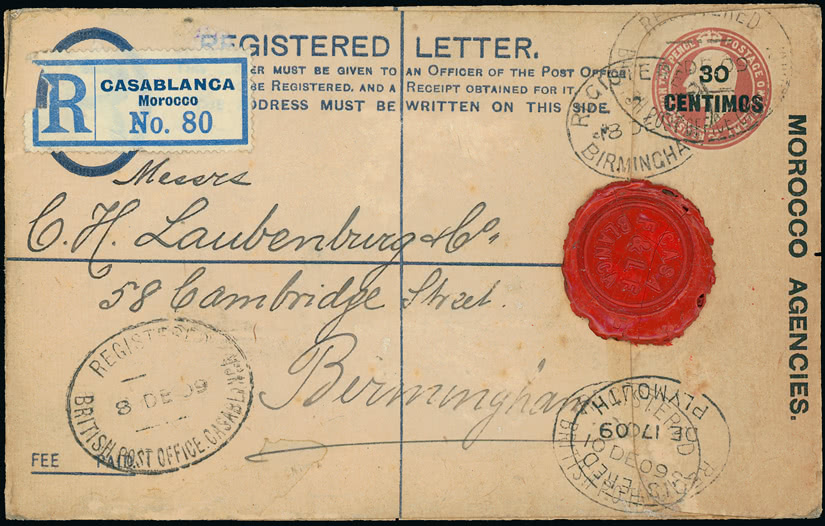 REGISTERED LETTER.
ER MUST BE GIVEN TO AN OFFICER OF THE POST OFFICE
BE REGISTERED, AND A RECEIPT OBTAINED FOR IT.
DDRESS MUST BE WRITTEN ON THIS SIDE.
R
CASABLANCA
Morocco
No. 80
30
CENTIMOS
POSTAGE
REGISTERED
BIRMINGHAM
MOROCCO AGENCIES.
Messrs
C. H. Laubenburg & Co.
58 Cambridge Street.
Birmingham
CASA
BLANCA
REGISTERED
8 DE 09
BRITISH POST OFFICE. CASABLANCA
REGISTERED
PLYMOUTH
DE 17 09
REGISTERED
10 DE 09
FEE PAID